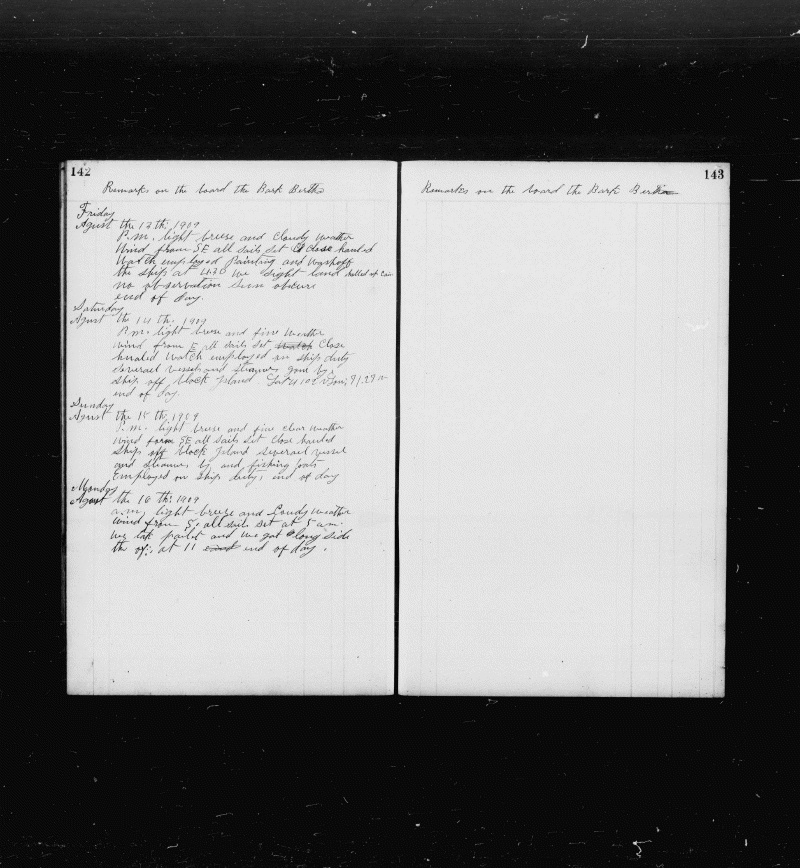 142
Remarks on the board the Bark Bertha
Friday
Agust the 13 th, 1909
P.m. light breese and Cloudy weather
Wind from SE all sails set Close hauled
Watch employed Painting and
the ship at 4.30 we sight land
no observation Sun obscure
end of day.
Saturday
Agust the 14 th. 1909
P.m. light breese and fine weather
wind from E all sails set Watch Close
hauled Watch employed on ships duty
severael vessels and steamers gone by.
ship off block Island
end of day.
Sunday
Agust the 15 th, 1909
P.m. light breese and fine clear weather
wind form SE all sails set Close hauled
ship off block Island severael vessel
and steamer by and fishing boats
Employed on ships duty, end of day
Monday
Agust the 16 th: 1909
a.m, light breese and Coudy weather
wind from S, all sails set at 5 am.
we tok pailot and we got along side
the at 11 end end of day.
143
Remarks on the board the Bark Bertha